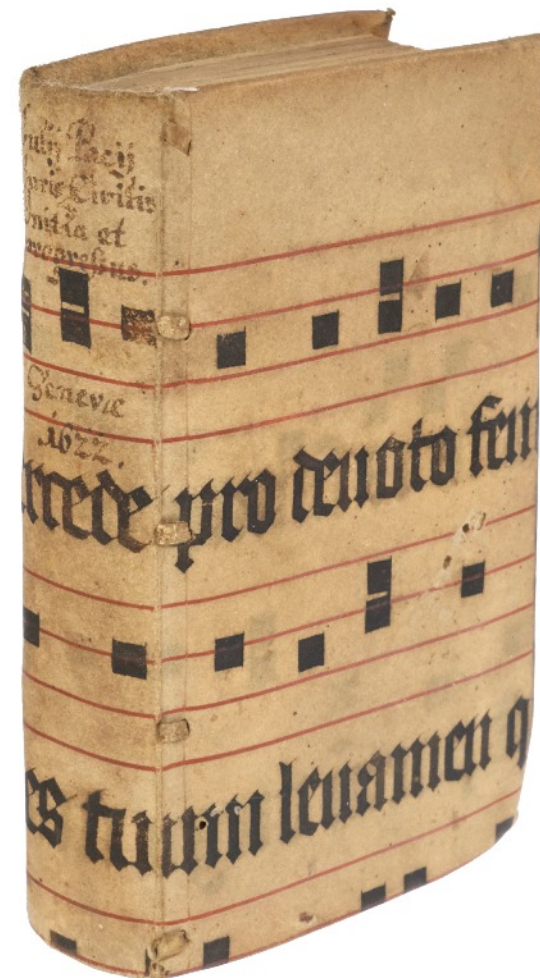 Iulij Pacij
Iuris Civilis
initia et
progressus.
Genevæ
1622.
pro deuoto
tuum leuamen q